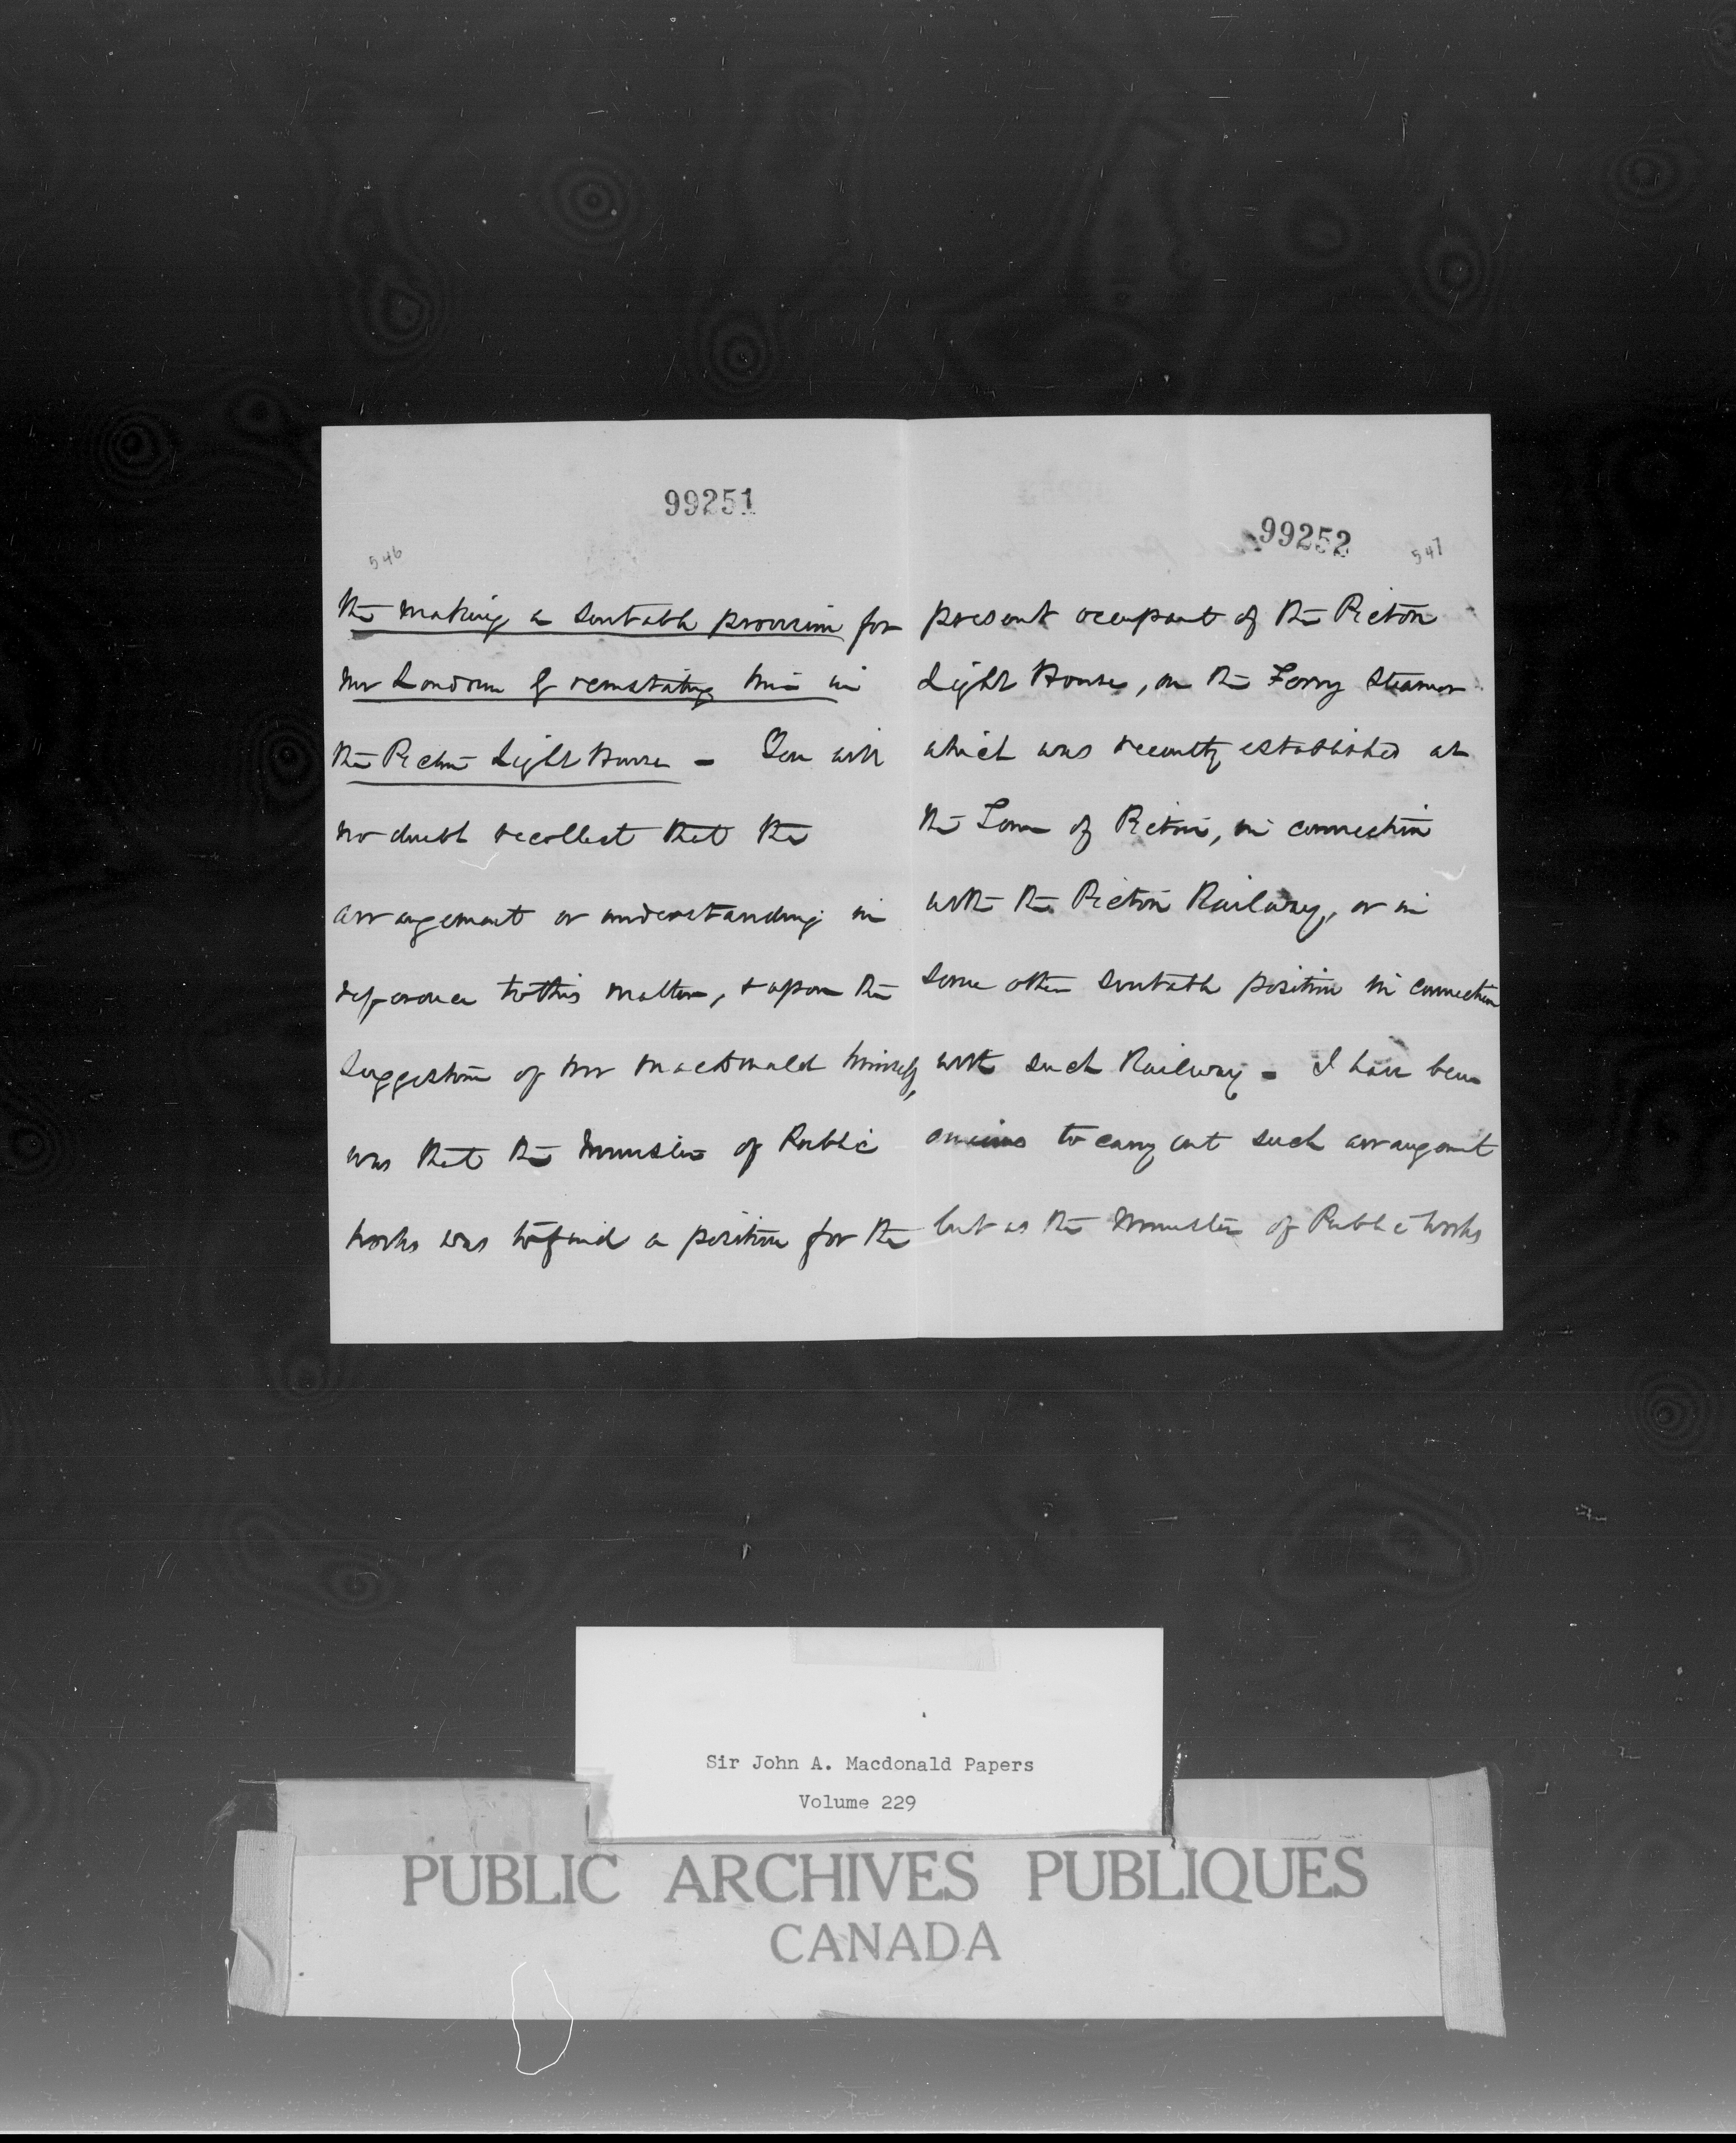 99251
546
the making a suitable provision for
Mr Lowden by reinstating him in
the Pictou Light House - You will
no doubt recollect that the
arrangement or understanding in
reference to this matter, & upon the
suggestion of Mr Macdonald himself,
was that the Minister of Public
Works was to find a position for the
99252
547
present occupant of the Pictou
Light House, on the Ferry Steamer
which was recently established at
the Town of Pictou, in connection
with the Pictou Railway, or in
some other suitable position in connection
with such Railway - I have been
anxious to carry out such arrangement
but as the Minister of Public Works
Sir John A. Macdonald Papers
Volume 229
PUBLIC ARCHIVES PUBLIQUES
CANADA